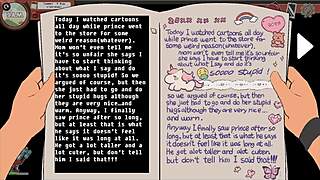 Today I watched cartoons
all day while prince went
to the store For some
weird reason(whatever).
Mom won't even tell me
it's so unfair she says I
have to start thinking
about what I say and do
it's soooo stupid! So we
argued of course, but then
she just had to go and do
her stupid hugs although
they are very nice…and
warm. Anyway, I finally
saw prince after so long,
but at least that is what
he says it doesn't feel
like it was long at all.
He got a lot taller and a
lot cuter, but don't tell
him I said that!!!
Today I watched cartoons all day
while prince went to the store for
some weird reason(whatever).
mom won't even tell me it's so unfair
she says I have to start thinking
about what I say and do it's
soooo stupid!
so we argued of course, but then
she just had to go and do her stupid
hugs although they are very nice...
and warm.
Anyway I finally saw prince after so
long, but at least that is what he says
it doesn't feel like it was long at all.
He got a lot taller and a lot cuter,
but don't tell him I said that!!!